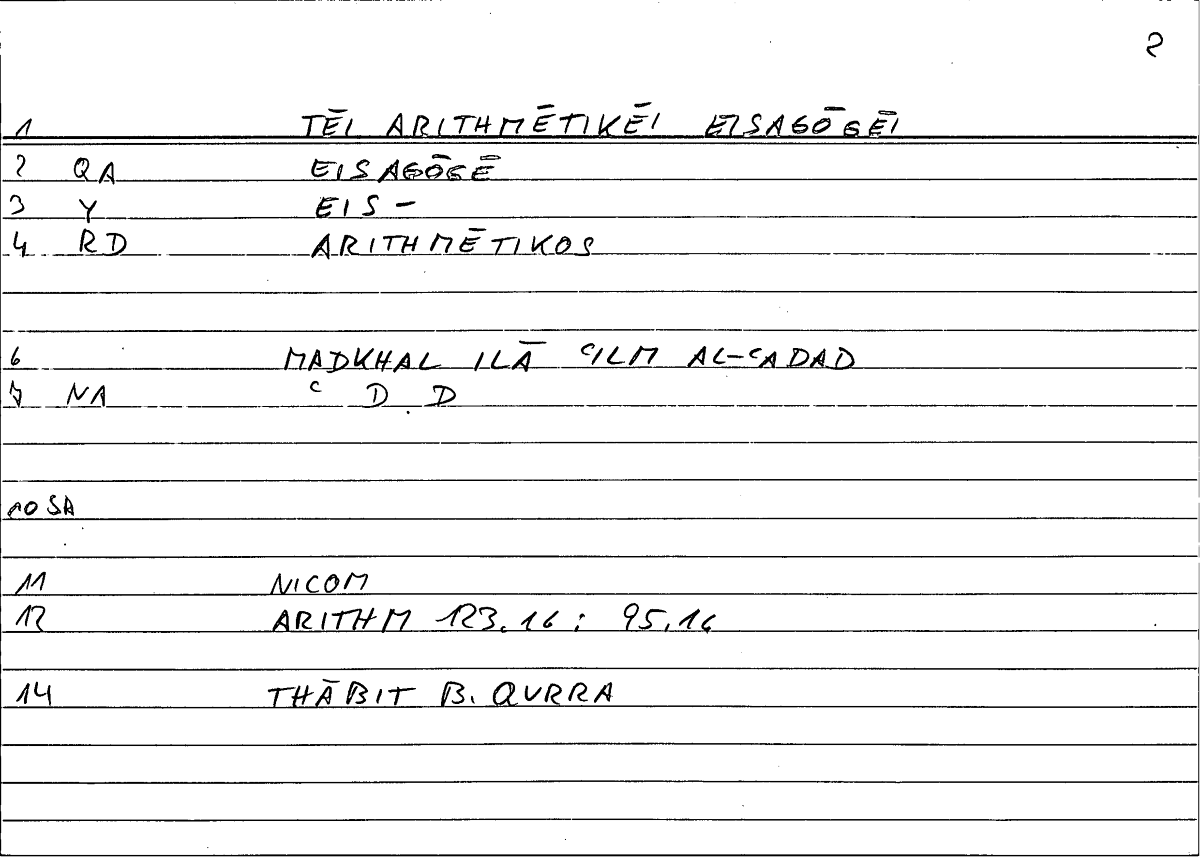 2
1 TĒI ARITHMĒTIKĒI EISAGŌGĒI
2 QA EISAGŌGĒ
3 Y EIS-
4 RD ARITHMĒTIKOS
6 MADKHAL ILĀ ʿILM AL-ʿADAD
7 NA ʿ D D
10 SA
11 NICOM
12 ARITHM 123.16; 95.16
14 THĀBIT B. QURRA